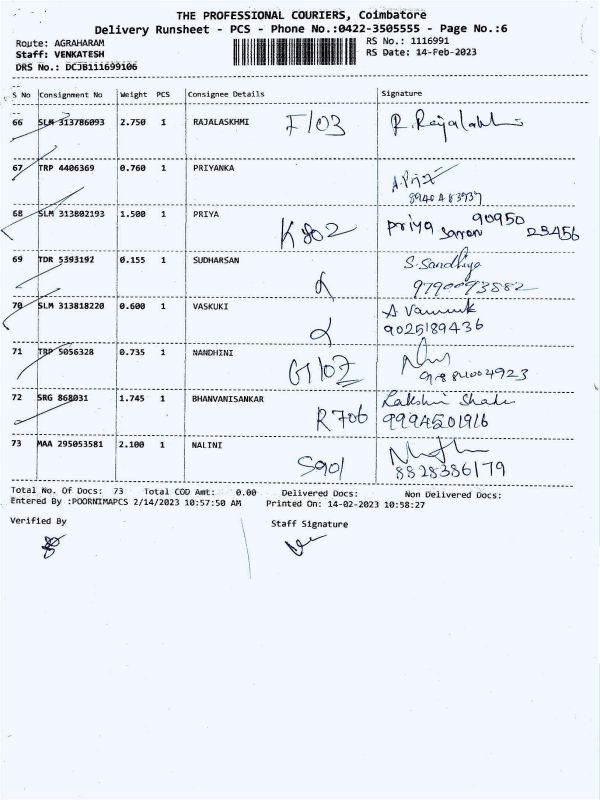 THE PROFESSIONAL COURIERS, Coimbatore
Delivery Runsheet - PCS - Phone No.:0422-3505555 - Page No.:6
Route: AGRAHARAM
Staff: VENKATESH
DRS No.: DCJB111699106
RS No.: 1116991
RS Date: 14-Feb-2023
S No Consignment No Weight PCS Consignee Details Signature
66 SLM 313786093 2.750 1 RAJALASKHMI F/03 R. Rajalakshmi
67 TRP 4406369 0.760 1 PRIYANKA
68 SLM 313802193 1.500 1 PRIYA K802 Priya 90950
23456
69 TDR 5393192 0.155 1 SUDHARSAN S. Sandhiya
9790093582
70 SLM 313818220 0.600 1 VASKUKI
9025189436
71 TRP 5056328 0.735 1 NANDHINI G1102
72 SRG 868031 1.745 1 BHANVANISANKAR R706 Lakshmi
9994501916
73 MAA 295053581 2.100 1 NALINI S901
8828386179
Total No. Of Docs: 73 Total COD Amt: 0.00 Delivered Docs: Non Delivered Docs:
Entered By :POORNIMAPCS 2/14/2023 10:57:50 AM Printed On: 14-02-2023 10:58:27
Verified By Staff Signature